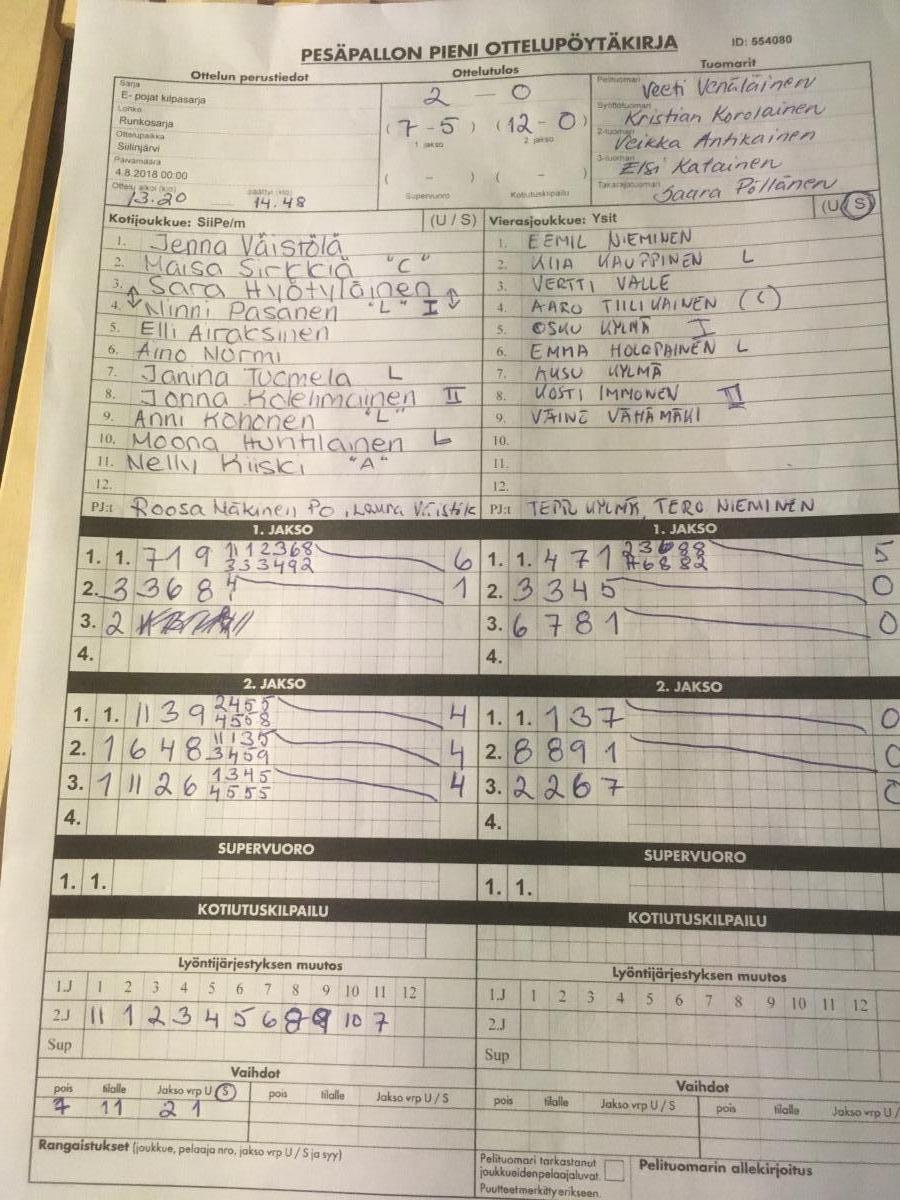 PESÄPALLON PIENI OTTELUPÖYTÄKIRJA ID: 554080
Ottelun perustiedot Ottelutulos Tuomarit
Sarja
E- pojat kilpasarja
Lohko
Runkosarja
Ottelupaikka
Siilinjärvi
Päivämäärä
4.8.2018 00:00
Ottelu alkoi (klo) päättyi (klo)
13.20 14.48
2 - 0
(7-5) (12-0)
1 jakso 2 jakso
( - ) ( - )
Supervuoro Kotiutuskilpailu
Pelituomari Veeti Venäläinen
Syöttötuomari Kristian Korolainen
2-tuomari Veikka Antikainen
3-tuomari Elsi Katainen
Takarajatuomari Saara Pöllänen
Kotijoukkue: SiiPe/m (U / S) Vierasjoukkue: Ysit (U / S)
1. Jenna Väistölä
2. Maisa Sirkkiä "C"
3. Sara Hyötyläinen
4. Ninni Pasanen "L" I
5. Elli Airaksinen
6. Aino Normi
7. Janina Tuomela L
8. Jonna Kolehmainen II
9. Anni Kohonen "L"
10. Moona Huntilainen L
11. Nelly Kiiski "A"
12.
PJ:t Roosa Mäkinen PO, Laura
1. EEMIL NIEMINEN
2. KAUPPINEN L
3. VERTTI VALLE
4. AARO TIILIKAINEN (C)
5. OSKU KYLMÄ I
6. EMMA HOLOPAINEN L
7. AUSU KYLMÄ
8. KOSTI IMMONEN II
9. VÄINÖ VÄHÄMÄKI
10.
11.
12.
PJ:t KYLMÄ, TERO NIEMINEN
1. JAKSO 1. JAKSO
1. 1. 7 1 9 1 1 1 2 3 6 8 6
3 3 3 4 9 2
2. 3 3 6 8 4 1
3. 2
4.
1. 1. 4 7 1 5
2. 3 3 4 5 0
3. 6 7 8 1 0
4.
2. JAKSO 2. JAKSO
1. 1. 11 3 9 2 4 5 5 4
4 5 6 8
2. 1 6 4 8 11 1 3 5 4
3 4 5 9
3. 1 11 2 6 1 3 4 5 4
4 5 5 5
4.
1. 1. 1 3 7 0
2. 8 8 9 1 0
3. 2 2 6 7 0
4.
SUPERVUORO SUPERVUORO
1. 1. 1. 1.
KOTIUTUSKILPAILU KOTIUTUSKILPAILU
Lyöntijärjestyksen muutos Lyöntijärjestyksen muutos
1.J 1 2 3 4 5 6 7 8 9 10 11 12 1.J 1 2 3 4 5 6 7 8 9 10 11 12
2.J 11 1 2 3 4 5 6 8 9 10 7 2.J
Sup Sup
Vaihdot Vaihdot
pois tilalle Jakso vrp U (S) pois tilalle Jakso vrp U / S pois tilalle Jakso vrp U / S pois tilalle Jakso vrp U /
7 11 2 1
Rangaistukset (joukkue, pelaaja nro, jakso vrp U / S ja syy)
Pelituomari tarkastanut
joukkueidenpelaajaluvat.
Puutteetmerkittyerikseen.
Pelituomarin allekirjoitus